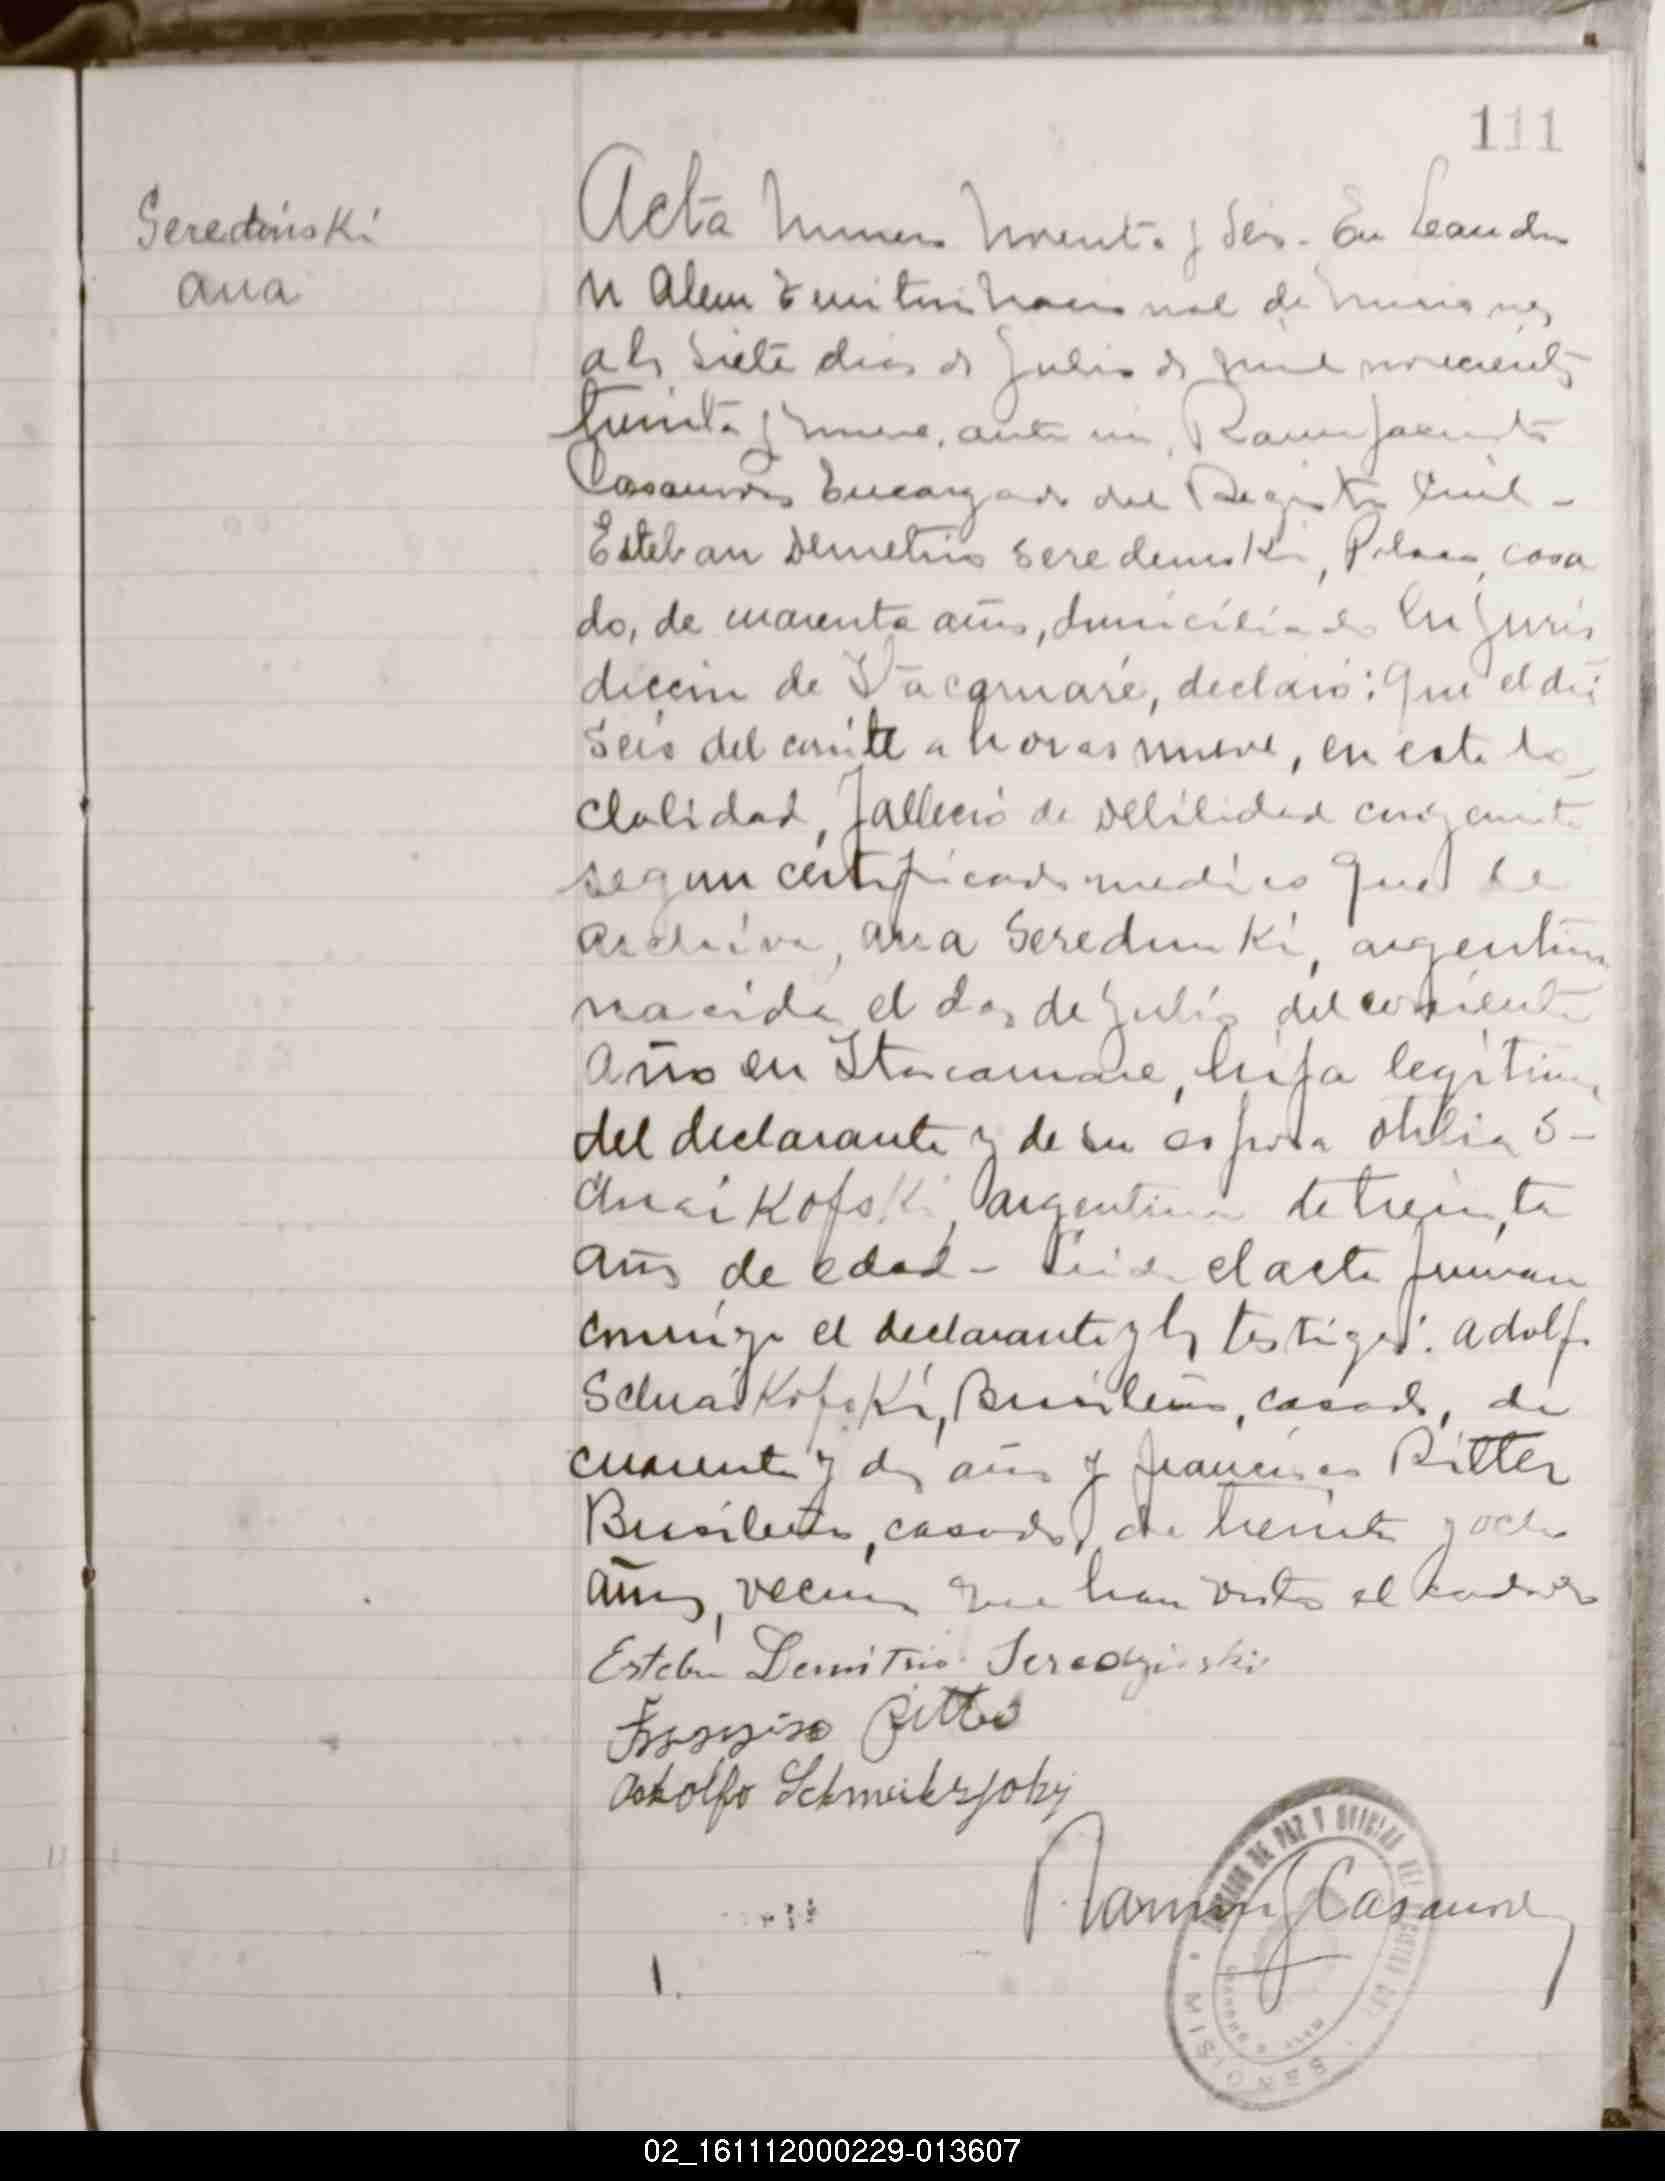 111
Seredinski
Ana
Acta Numero Noventa y Seis. En Leandro
N Alem Territorio Nacional de Misiones
a los siete dias de Julio de mil novecientos
treinta y nueve, ante mi, Ramon Jacinto
Casanova Encargado del Registro Civil -
Esteban Demetrio Seredinski, Polaco, casa
do, de cuarenta años, domiciliado En Juris
diccion de Itacaruaré, declaró: Que el dia
seis del corrte a horas nueve, en esta lo
clalidad, falleció de Debilidad congenita
segun certificado medico que se
archiva, Ana Seredinski, argentina
nacida el dos de Julio del corriente
año en Itacaruare, hija legitima
del declarante y de su esposa Otilia S-
Kofski, argentina de treinta
años de edad - Leida el acta firman
conmigo el declarante y los testigos: Adolfo
Schnaikofski, Brasileño, casado, de
cuarenta y dos años y Francisco Ritter
Brasileño, casado, de treinta y ocho
años, vecinos que han visto el cadaver
Esteban Demitrio Seredzinski
Francisco Ritter
Adolfo
Ramon J Casanova
DE PAZ Y OFICIAL DEL
MISIONES
1.
02_161112000229-013607